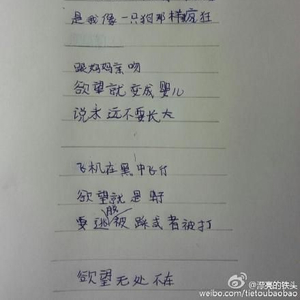 是我像一只狗那样疯狂
跟妈妈亲吻
欲望就变成婴儿
说永远不要长大
飞机在黑中飞行
欲望就是
要逃脱被踩或者被打
欲望无处不在
@漂亮的铁头
weibo.com/tietoubaobao